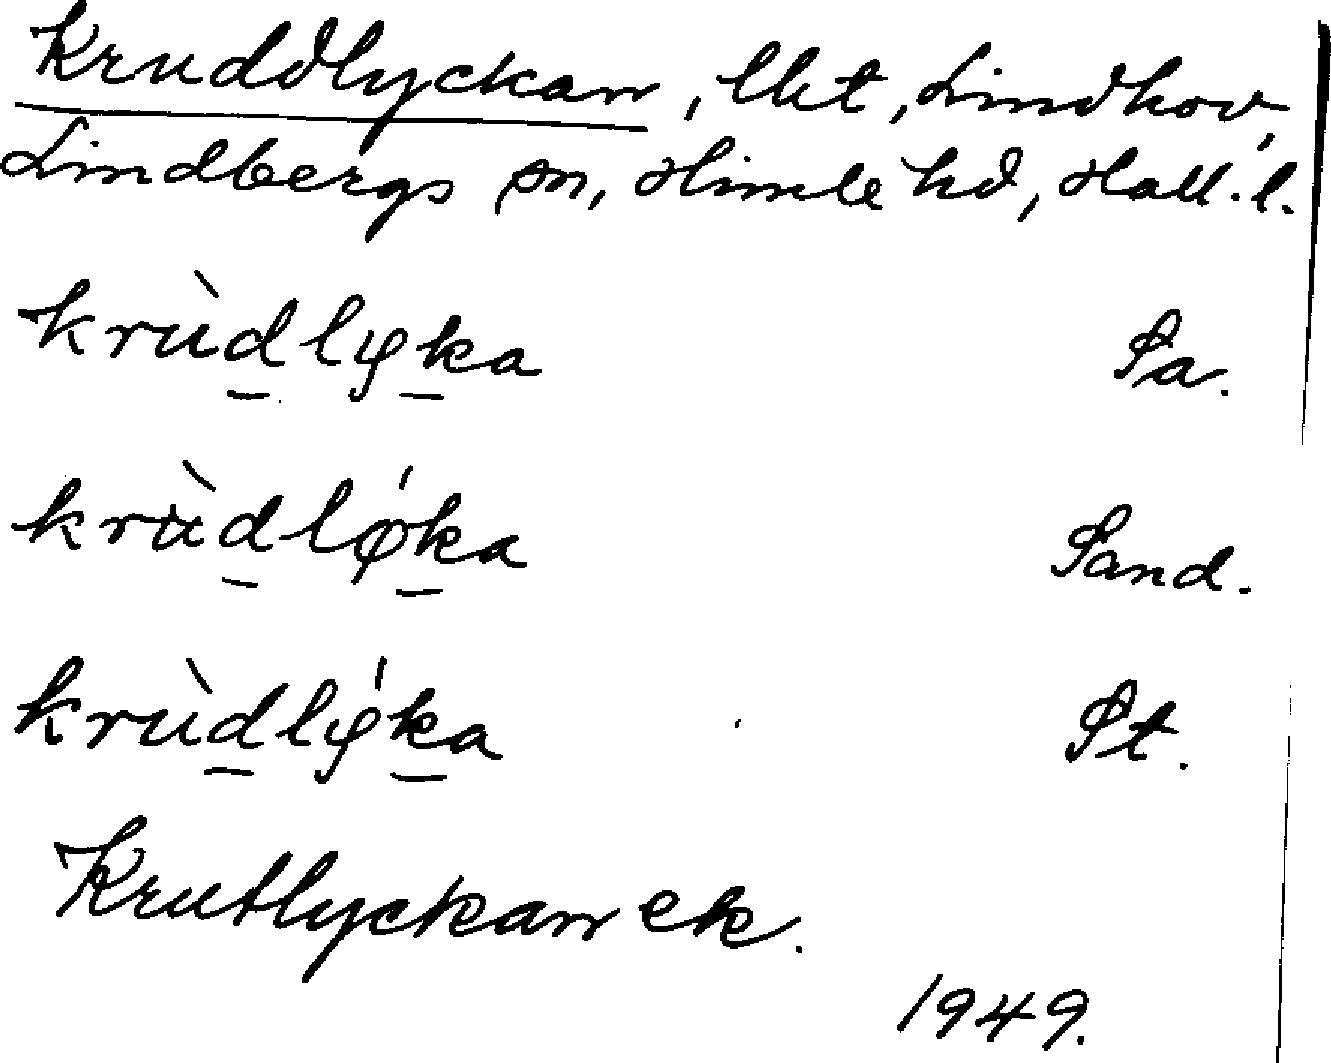 Kruddlyckan, lht, Lindhov,
Lindbergs sn, Himle hd, Hall. l.
krùdlyka Sa.
krùdlǿka Sand.
krùdlýka St.
Krutlyckan ek.
1949.